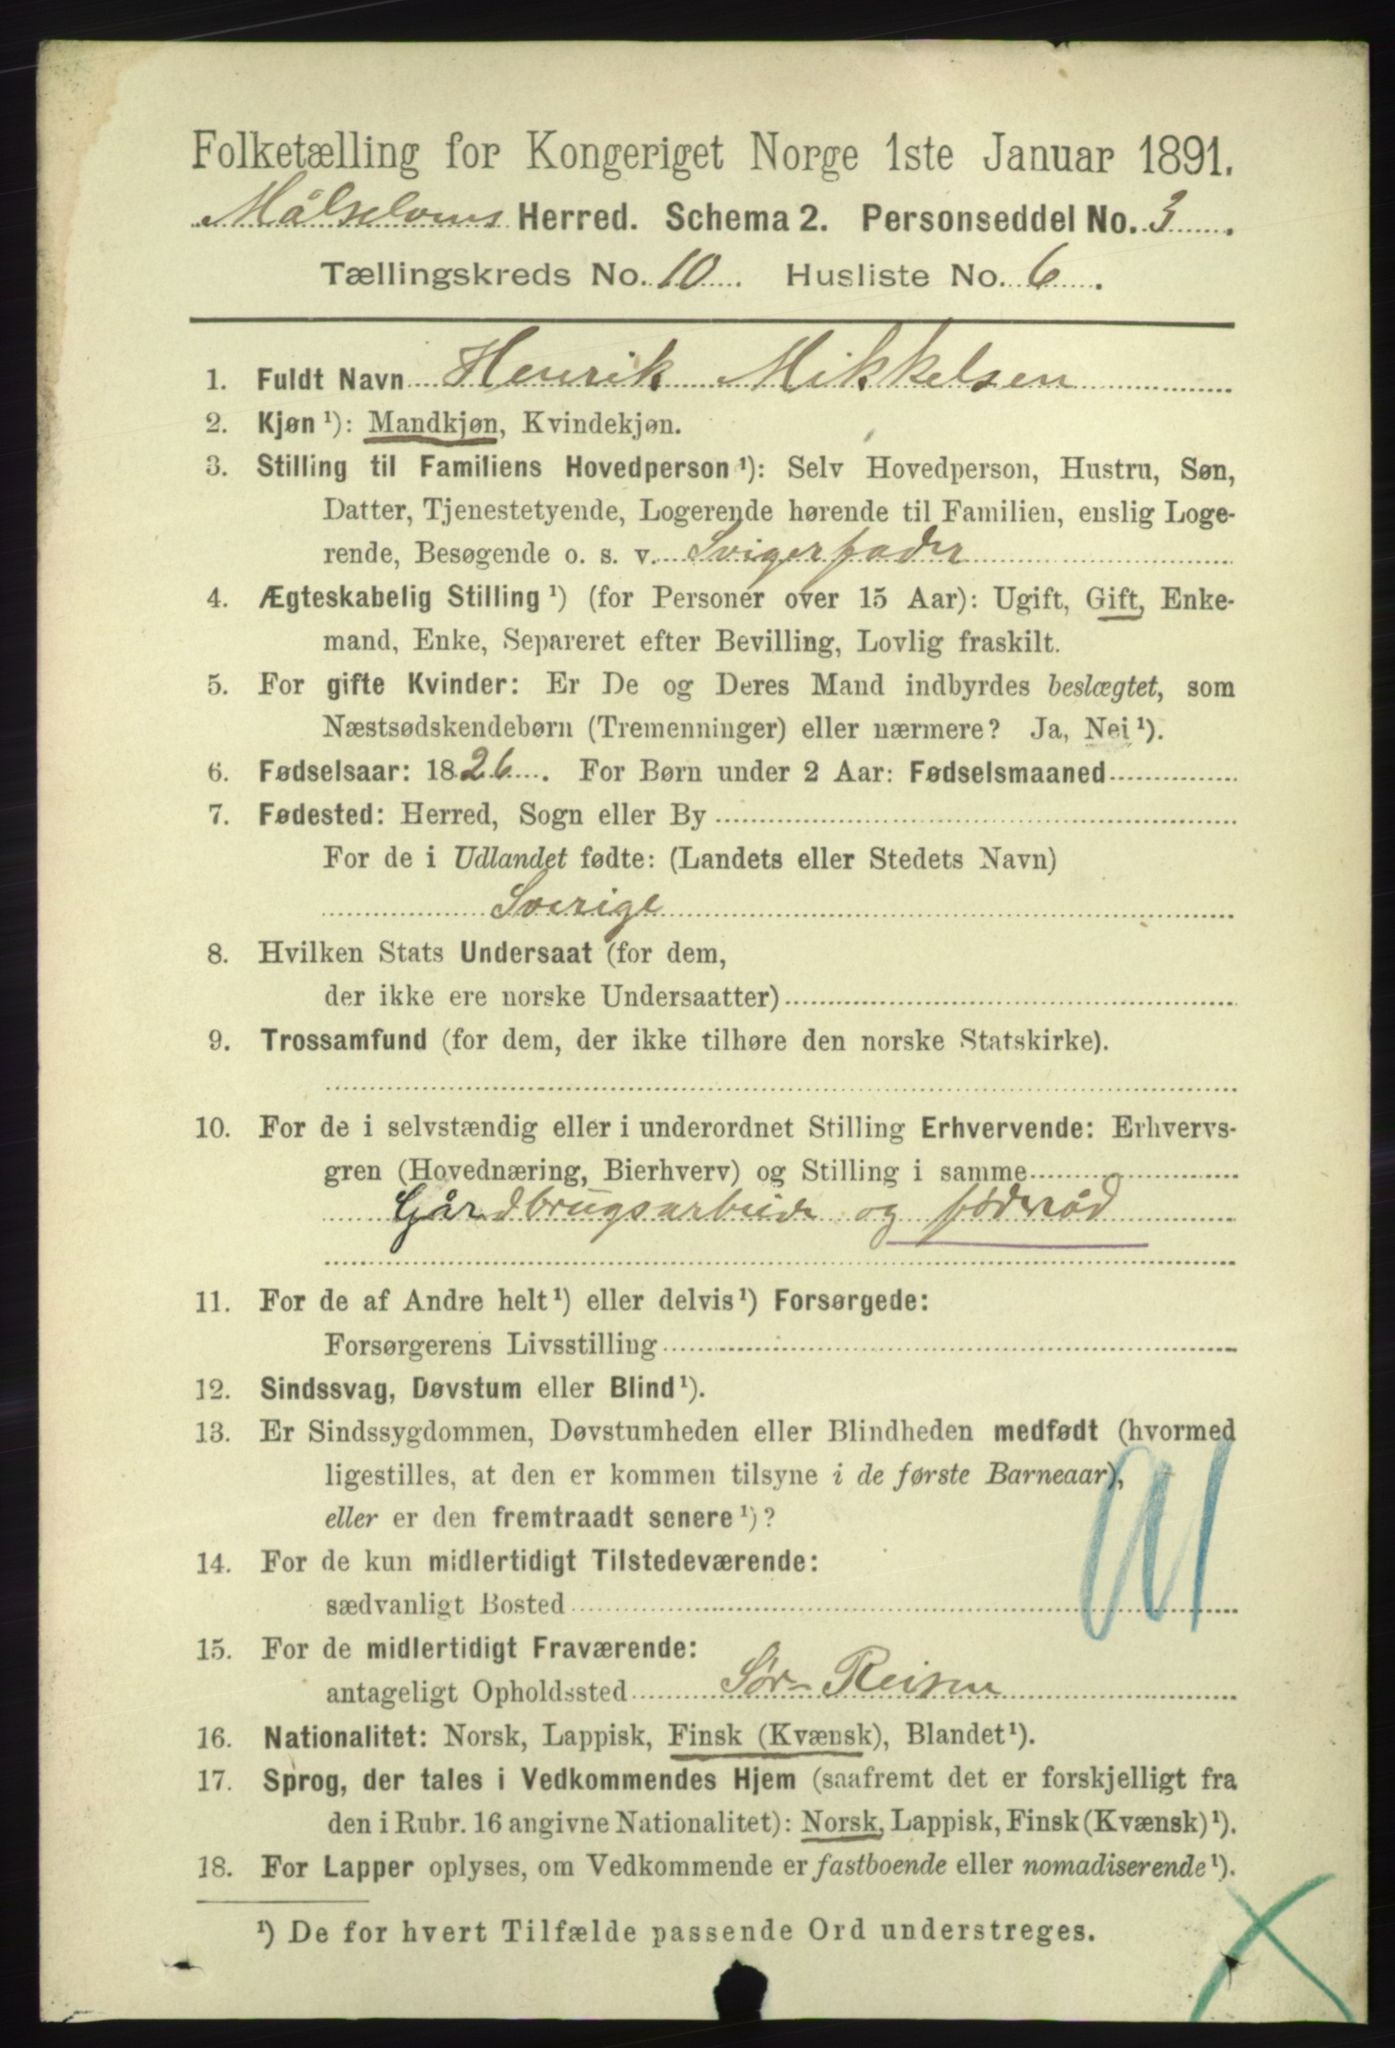 Folketælling for Kongeriget Norge 1ste Januar 1891.
Målselvens Herred. Schema 2. Personseddel No. 3.
Tællingskreds No. 10. Husliste No. 6.
1. Fuldt Navn Henrik Mikkelsen
2. Kjøn ¹): Mandkjøn, Kvindekjøn.
3. Stilling til Familiens Hovedperson ¹): Selv Hovedperson, Hustru, Søn,
Datter, Tjenestetyende, Logerende hørende til Familien, enslig Loge-
rende, Besøgende o. s. v. Svigerfader
4. Ægteskabelig Stilling ¹) (for Personer over 15 Aar): Ugift, Gift, Enke-
mand, Enke, Separeret efter Bevilling, Lovlig fraskilt.
5. For gifte Kvinder: Er De og Deres Mand indbyrdes beslægtet, som
Næstsødskendebørn (Tremenninger) eller nærmere? Ja, Nei ¹).
6. Fødselsaar: 1826. For Børn under 2 Aar: Fødselsmaaned
7. Fødested: Herred, Sogn eller By
For de i Udlandet fødte: (Landets eller Stedets Navn)
Sverige
8. Hvilken Stats Undersaat (for dem,
der ikke ere norske Undersaatter)
9. Trossamfund (for dem, der ikke tilhøre den norske Statskirke).
10. For de i selvstændig eller i underordnet Stilling Erhvervende: Erhvervs-
gren (Hovednæring, Bierhverv) og Stilling i samme
Gårdbrugsarbeide og føderåd
11. For de af Andre helt ¹) eller delvis ¹) Forsørgede:
Forsørgerens Livsstilling
12. Sindssvag, Døvstum eller Blind ¹).
13. Er Sindssygdommen, Døvstumheden eller Blindheden medfødt (hvormed
ligestilles, at den er kommen tilsyne i de første Barneaar),
eller er den fremtraadt senere ¹)?
14. For de kun midlertidigt Tilstedeværende:
sædvanligt Bosted
15. For de midlertidigt Fraværende:
antageligt Opholdssted Sør-Reisen
16. Nationalitet: Norsk, Lappisk, Finsk (Kvænsk), Blandet ¹).
17. Sprog, der tales i Vedkommendes Hjem (saafremt det er forskjelligt fra
den i Rubr. 16 angivne Nationalitet): Norsk, Lappisk, Finsk (Kvænsk) ¹).
18. For Lapper oplyses, om Vedkommende er fastboende eller nomadiserende ¹).
¹) De for hvert Tilfælde passende Ord understreges.